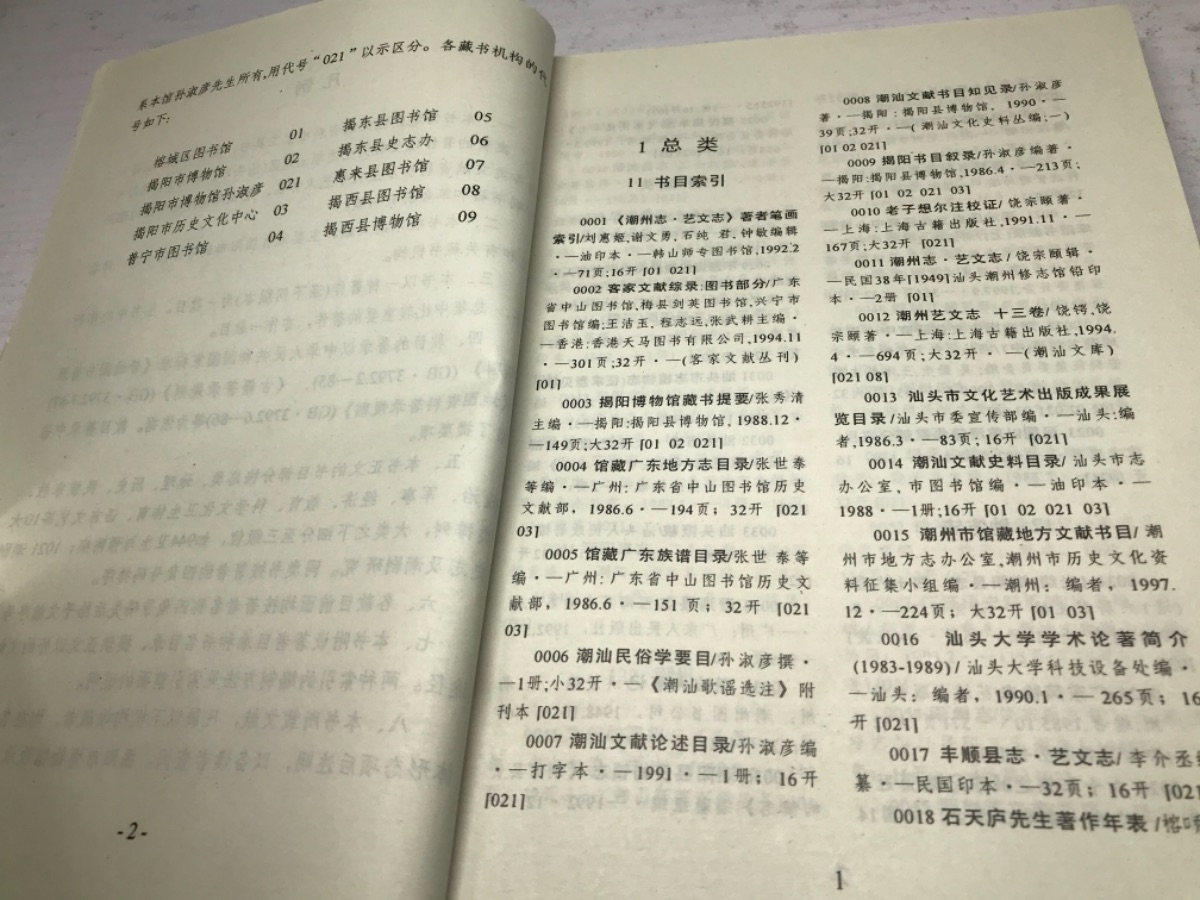 系本馆孙淑彦先生所有,用代号“021”以示区分。各藏书机构的代
号如下:
榕城区图书馆 01 揭东县图书馆 05
揭阳市博物馆 02 揭东县史志办 06
揭阳市博物馆孙淑彦 021 惠来县图书馆 07
揭阳市历史文化中心 03 揭西县图书馆 08
普宁市图书馆 04 揭西县博物馆 09
-2-
1 总类
11 书目索引
0001 《潮州志·艺文志》著者笔画
索引/刘惠姬,谢文勇,石纯 君,钟敏编辑
·—油印本·—韩山师专图书馆,1992.2
·—71页;16开[01 021]
0002 客家文献综录:图书部分/广东
省中山图书馆,梅县剑英图书馆,兴宁市
图书馆编;王洁玉, 程志远,张武耕主编·
—香港:香港天马图书有限公司,1994.11
·—301页;32开·—(客家文献丛刊)
[01]
0003 揭阳博物馆藏书提要/张秀清
主编·—揭阳:揭阳县博物馆, 1988.12·
—149页;大32开[01 02 021]
0004 馆藏广东地方志目录/张世泰
等编·—广州: 广东省中山图书馆历史
文献部, 1986.6·—194页; 32开[021
03]
0005 馆藏广东族谱目录/张世 泰等
编·—广州: 广东省中山图书馆历史文
献部, 1986.6·—151 页; 32开 [021
03]
0006 潮汕民俗学要目/孙淑彦撰·
—1册;小32开·—《潮汕歌谣选注》附
刊本[021]
0007 潮汕文献论述目录/孙淑彦编
·—打字本·—1991·—1册; 16开
[021]
0008 潮汕文献书目知见录/孙淑彦
著·—揭阳: 揭阳县博物馆, 1990·—
39页;32开·—( 潮汕文化史料丛编;一)
[01 02 021]
0009 揭阳书目叙录/孙淑彦编著·
—揭阳:揭阳县博物馆,1986.4·—213页;
大32开[01 02 021 03]
0010 老子想尔注校证/ 饶宗颐著·
—上海:上海古籍出版社,1991.11·—
167页;大32开[021]
0011 潮州志·艺文志/ 饶宗颐辑·
—民国38年[1949]汕头潮州修志馆铅印
本·—2册 [01]
0012 潮州艺文志 十三卷/ 饶锷,饶
宗颐著·—上海:上海古籍出版社,1994.
4·—694页;大32开·—(潮汕文库)
[021 08]
0013 汕头市文化艺术出版成果展
览目录/汕头市委宣传部编·—汕头:编
者,1986.3·—83页; 16开[021]
0014 潮汕文献史料目录/ 汕头市志
办公室, 市图书馆编·—油印本·—
1988·—1册;16开[01 02 021 03]
0015 潮州市馆藏地方文献书目/ 潮
州市地方志办公室,潮州市历史文化资
料征集小组编·—潮州: 编者, 1997.
12·—224页; 大32开[01 03]
0016 汕头大学学术论著简介
(1983-1989)/ 汕头大学科技设备处编·
—汕头: 编者, 1990.1·— 265页; 16
开[021]
0017 丰顺县志·艺文志/ 李介丞编
纂·—民国印本·—32页; 16开[021
0018 石天庐先生著作年表/榕
1